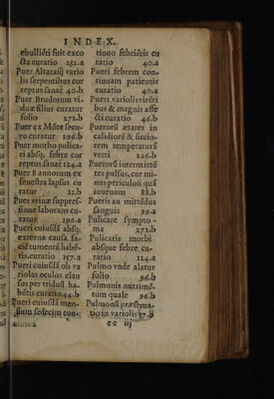 INDEX.
ebullieti fuit exco
cta curatio 252.a
Puer Altarasij vario
lis serpentibus cor
reptus sanat 40.b
Puer Brudorum vi-
duæ filius curatur
folio 272.b
Puer ex Mõte secu-
ro curatur 196.b
Puer morbo pulica-
ri absq; febre cor
reptus sanat 124.a
Puer 8 annorum ex
fenestra lapsus cu
ratur 22.b
Puer vrinæ suppres-
sione laborans cu-
ratur 196.a
Pueri cuiusdā absq;
externa causa fa-
ciē tumentē habē-
tis, curatio 157.a
Pueri cuiusdā ob va
riolas oculos clau
sos per triduū ha-
bētis curatio 44.b
Pueri cuiusdā men-
sium sedecim con-
tinuo febriētis cu
ratio 40.a
Pueri febrem con-
tinuam patientis
curatio 40.a
Pueri variolis virēti
bus & magnis affe
cti curatio 46.b
Puerorū ætates in
calidiorē & siccio-
rem temperaturā
verti 226.b
Puerorū intermittē
tes pulsus, cur mi-
nus periculosi quā
iuuenum 88.b
Pueris an mittēdus
sanguis 99.a
Pulicare sympto-
ma 272.b
Pulicaris morbi
absque febre cu-
ratio 124.a
Pulmo vnde alatur
folio 96.b
Pulmonis nutrimē-
tum quale 96.b
Pulmonū præserua-
tio in variolis 37.b
ee iij